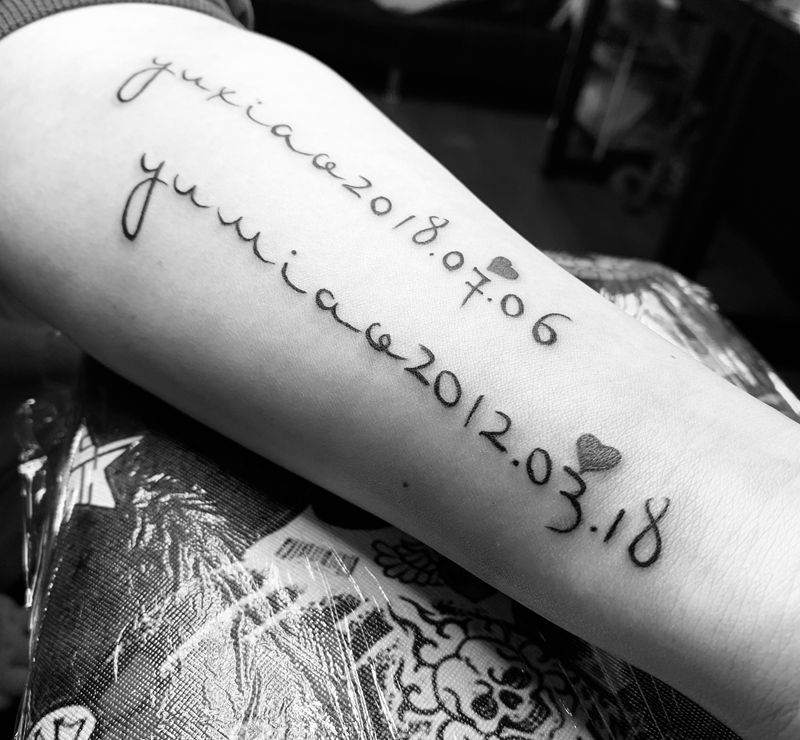 yuxiao2018.07.06
yumiao2012.03.18